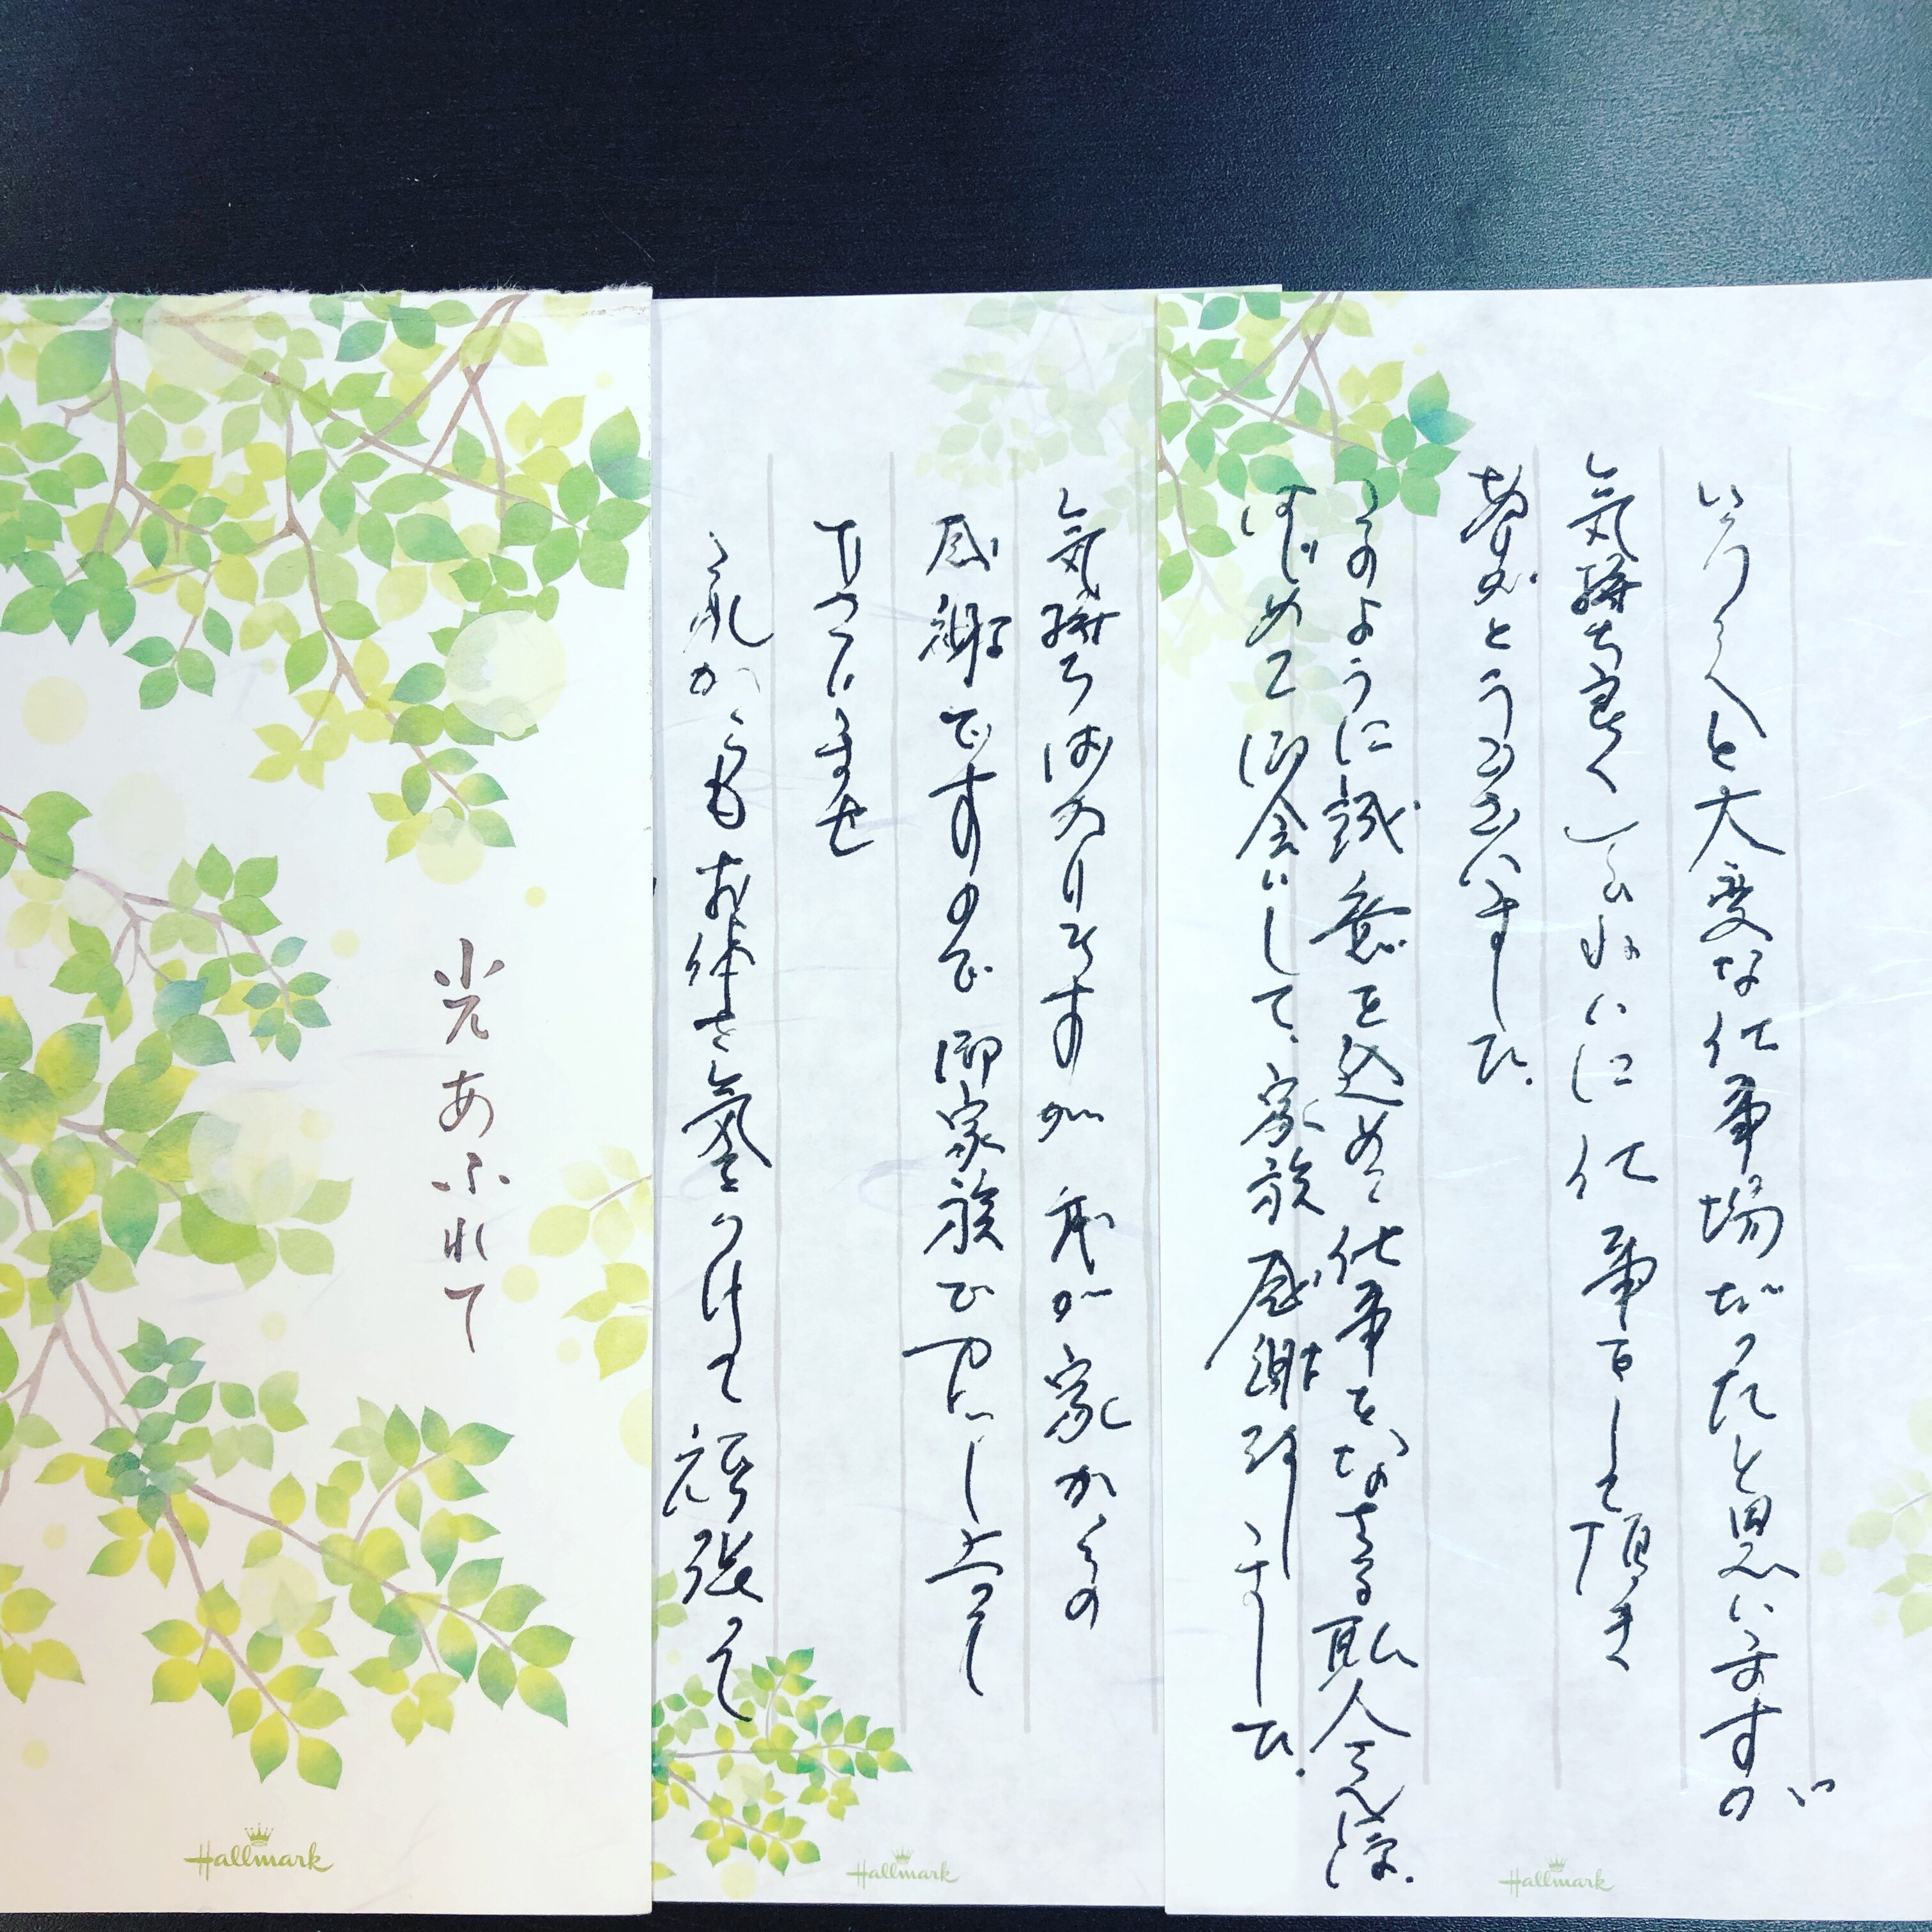 いろいろと大変な仕事場だったと思いますが
気持ち良く、きれいに仕事をして頂き
ありがとうございました。
このように誠意を込めて仕事をなさる職人さん達に
はじめて御会いして、家族感謝致しました。
気持ちばかりですが我が家からの
感謝ですので御家族で召し上って
下さいませ
これからもお体を気をつけて頑張って
光あふれて
Hallmark
Hallmark
Hallmark